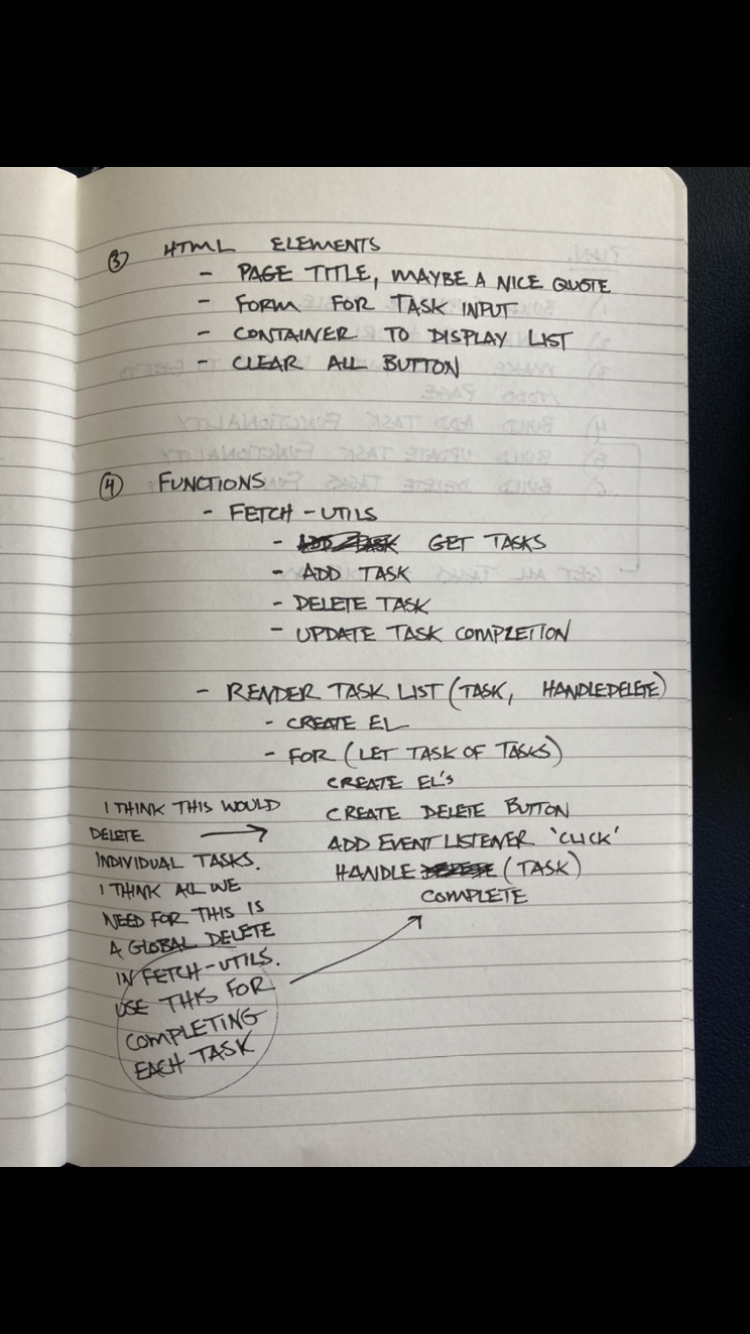 ③ HTML ELEMENTS
- PAGE TITLE, MAYBE A NICE QUOTE
- FORM FOR TASK INPUT
- CONTAINER TO DISPLAY LIST
- CLEAR ALL BUTTON
④ FUNCTIONS
- FETCH-UTILS
- ADD TASK GET TASKS
- ADD TASK
- DELETE TASK
- UPDATE TASK COMPLETION
- RENDER TASK LIST (TASK, HANDLEDELETE)
- CREATE EL
- FOR (LET TASK OF TASKS)
CREATE EL'S
CREATE DELETE BUTTON
ADD EVENT LISTENER 'CLICK'
HANDLE (TASK)
COMPLETE
I THINK THIS WOULD
DELETE →
INDIVIDUAL TASKS.
I THINK ALL WE
NEED FOR THIS IS
A GLOBAL DELETE
IN FETCH-UTILS.
USE THIS FOR
COMPLETING
EACH TASK